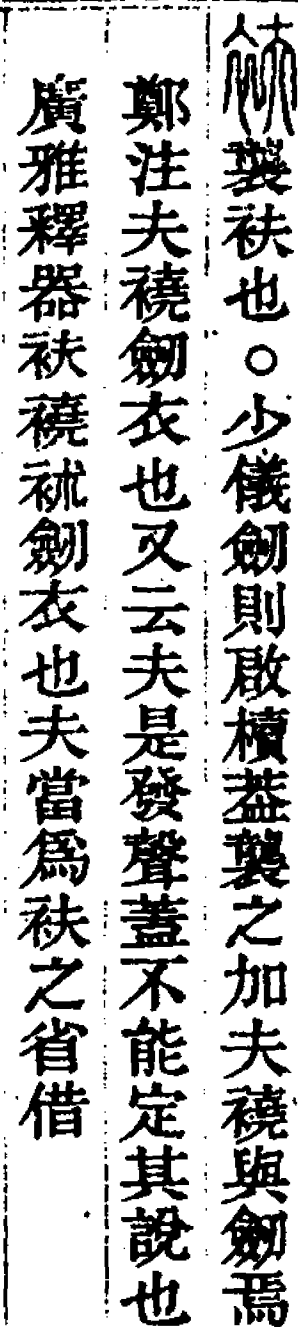 衭襲衭也○少儀劒則啟櫝葢襲之加夫襓與劒焉
鄭注夫襓劒衣也又云夫是發聲蓋不能定其說也
廣雅釋器衭襓劒衣也夫當爲衭之省借